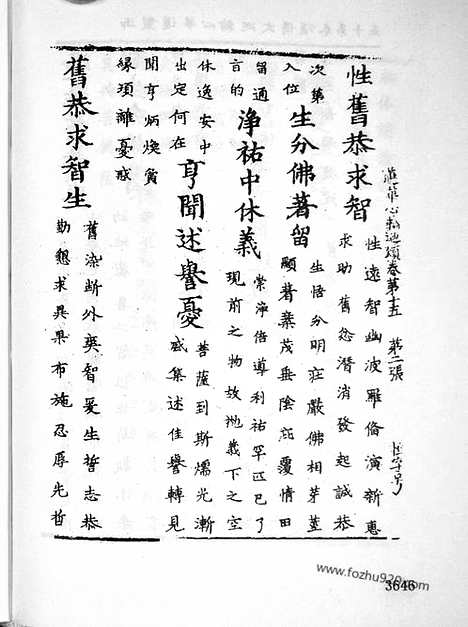 蓮華心輪迴頌卷第十五 第二張
性舊恭求智
性遠智幽波羅偹演新惠
求助舊忩潛消發起誠恭
次第
入位
生分佛著留
生悟分明莊嚴佛相芽莖
顯著葉茂垂陰託覆情田
留通
言的
淨祐中休義
崇淨偣導利祐罕匹已了
現前之物放抛義下之空
休逸安中
出定何在
亨聞述譽憂
菩薩到斯燸光漸
感集述佳譽轉見
聞亨炳煥資
緣項離憂慼
舊恭求智生
舊染斷外奕智爰生誓志恭
勤懇求異果布施忍辱先哲
www.fozhu920.com
3646